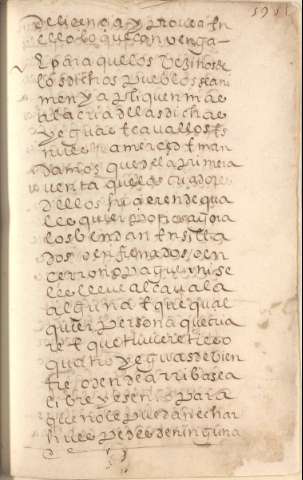 deligencia y provean en
ello lo que convenga
E para que los vezinos de
los dichos pueblos se ani
men y apliquen mas
a la cria de las dichas
yeguas e cavallos es
nuestra merced e man
damos que de la primera
venta que los criadores
dellos hizieren de qual
quier potro agora
los vendan ensilla
dos o enfrenados o en
cerro no paguen ni se
les lleve alcavala
alguna e que qual
quier persona que tuvie
re e que tuviere tres o
quatro yeguas de vien
tre o dende arriba sea
libre y esento para
que no le puedan echar
huespedes de ninguna